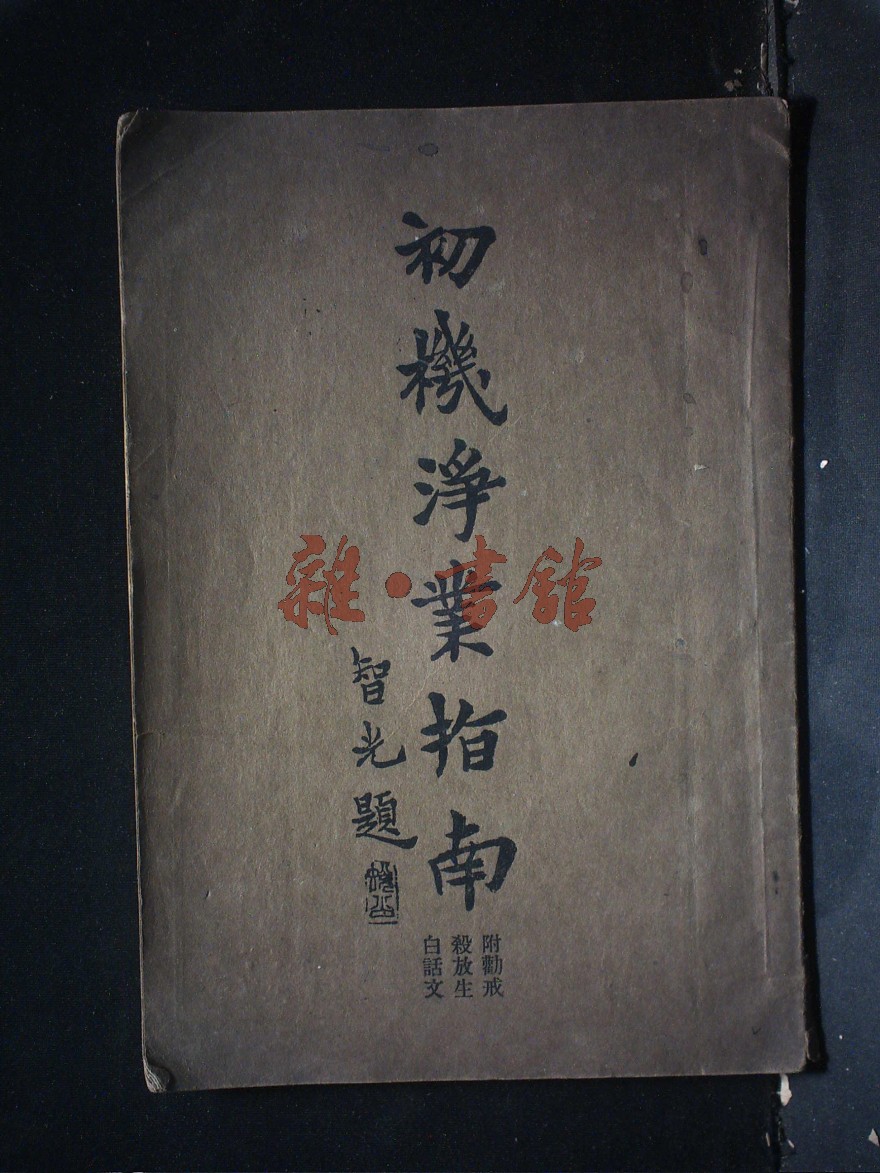 初機淨業指南
附勸戒
殺放生
白話文
智光題
雜·書館